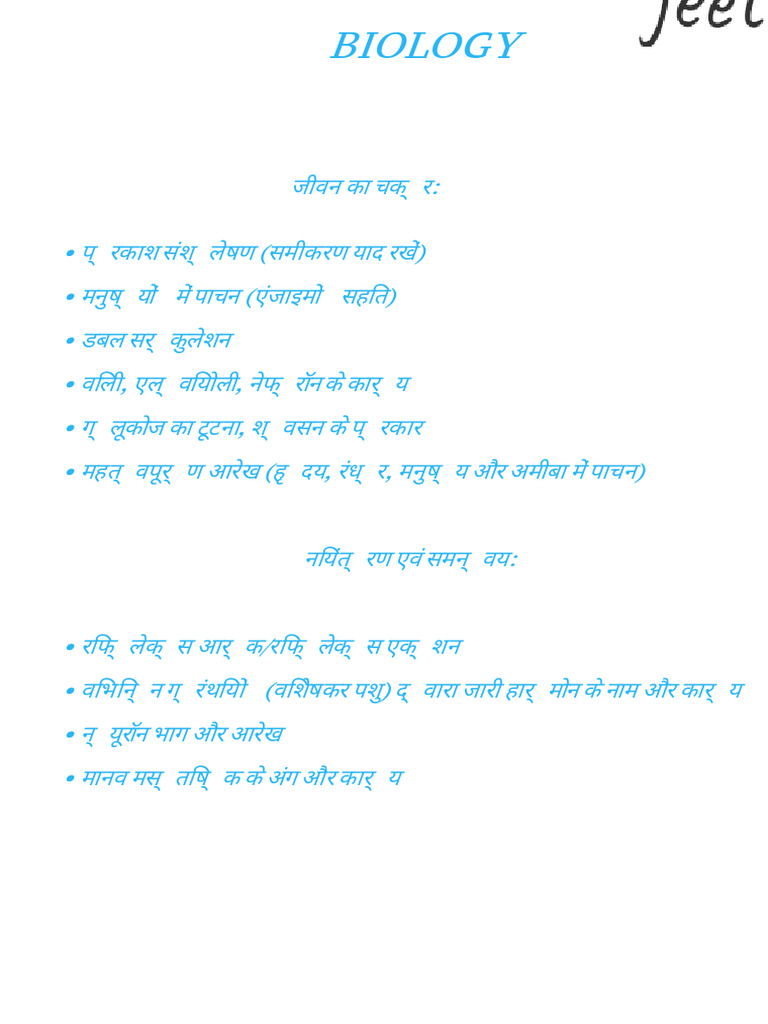 jeet
BIOLOGY
जीवन का चक्र:
• प्रकाश संश्लेषण (समीकरण याद रखें)
• मनुष्यों में पाचन (एंजाइमों सहित)
• डबल सर्कुलेशन
• विली, एल्वियोली, नेफ्रॉन के कार्य
• ग्लूकोज का टूटना, श्वसन के प्रकार
• महत्वपूर्ण आरेख (हृदय, रंध्र, मनुष्य और अमीबा में पाचन)
नियंत्रण एवं समन्वय:
• रिफ्लेक्स आर्क/रिफ्लेक्स एक्शन
• विभिन्न ग्रंथियों (विशेषकर पशु) द्वारा जारी हार्मोन के नाम और कार्य
• न्यूरॉन भाग और आरेख
• मानव मस्तिष्क के अंग और कार्य